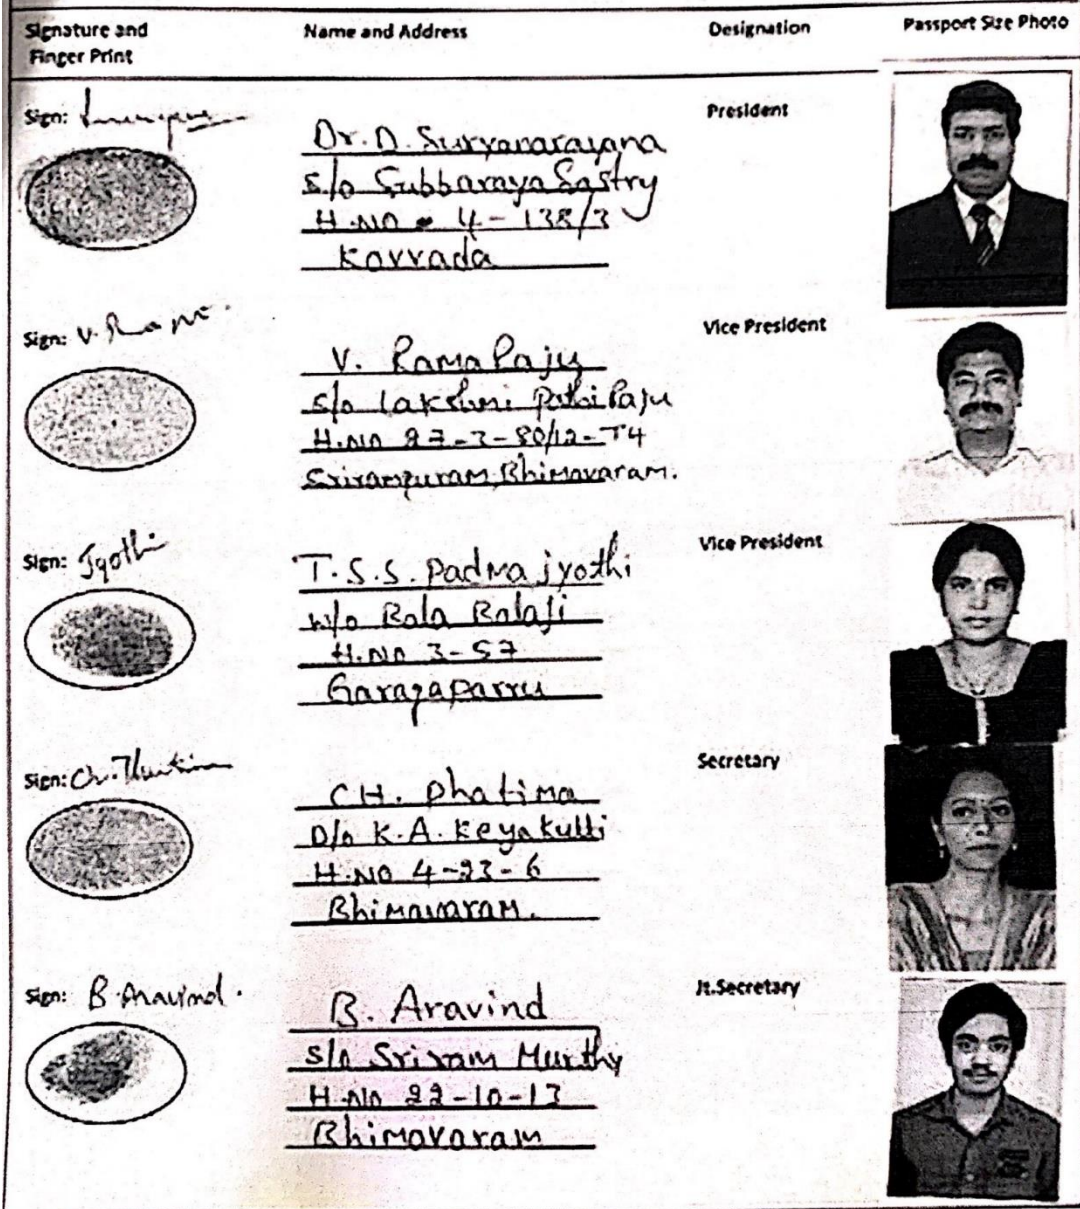 Signature and Finger Print
Name and Address
Designation
Passport Size Photo
Sign:
Dr. D. Suryanarayana
S/o Subbaraya Sastry
H.NO 4-138/3
Kovvada
President
Sign: V. Raju
V. Rama Raju
S/o Lakshmi Pathi Raju
H.No 27-3-80/12-T4
Srirampuram, Bhimavaram.
Vice President
Sign: Jyothi
T.S.S. Padma jyothi
W/o Bala Balaji
H.No 3-57
Garagaparru
Vice President
Sign: Ch.
CH. Phatima
D/o K.A. Keyakutti
H.NO 4-23-6
Bhimavaram.
Secretary
Sign: B. Aravind.
B. Aravind
S/o Sriram Murthy
H.No 22-10-13
Bhimavaram
Jt.Secretary